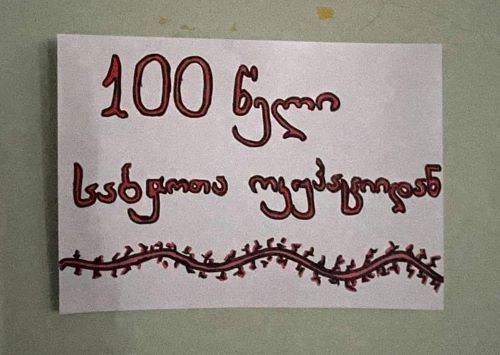 100 წელი
საბჭოთა ოკუპაციიდან